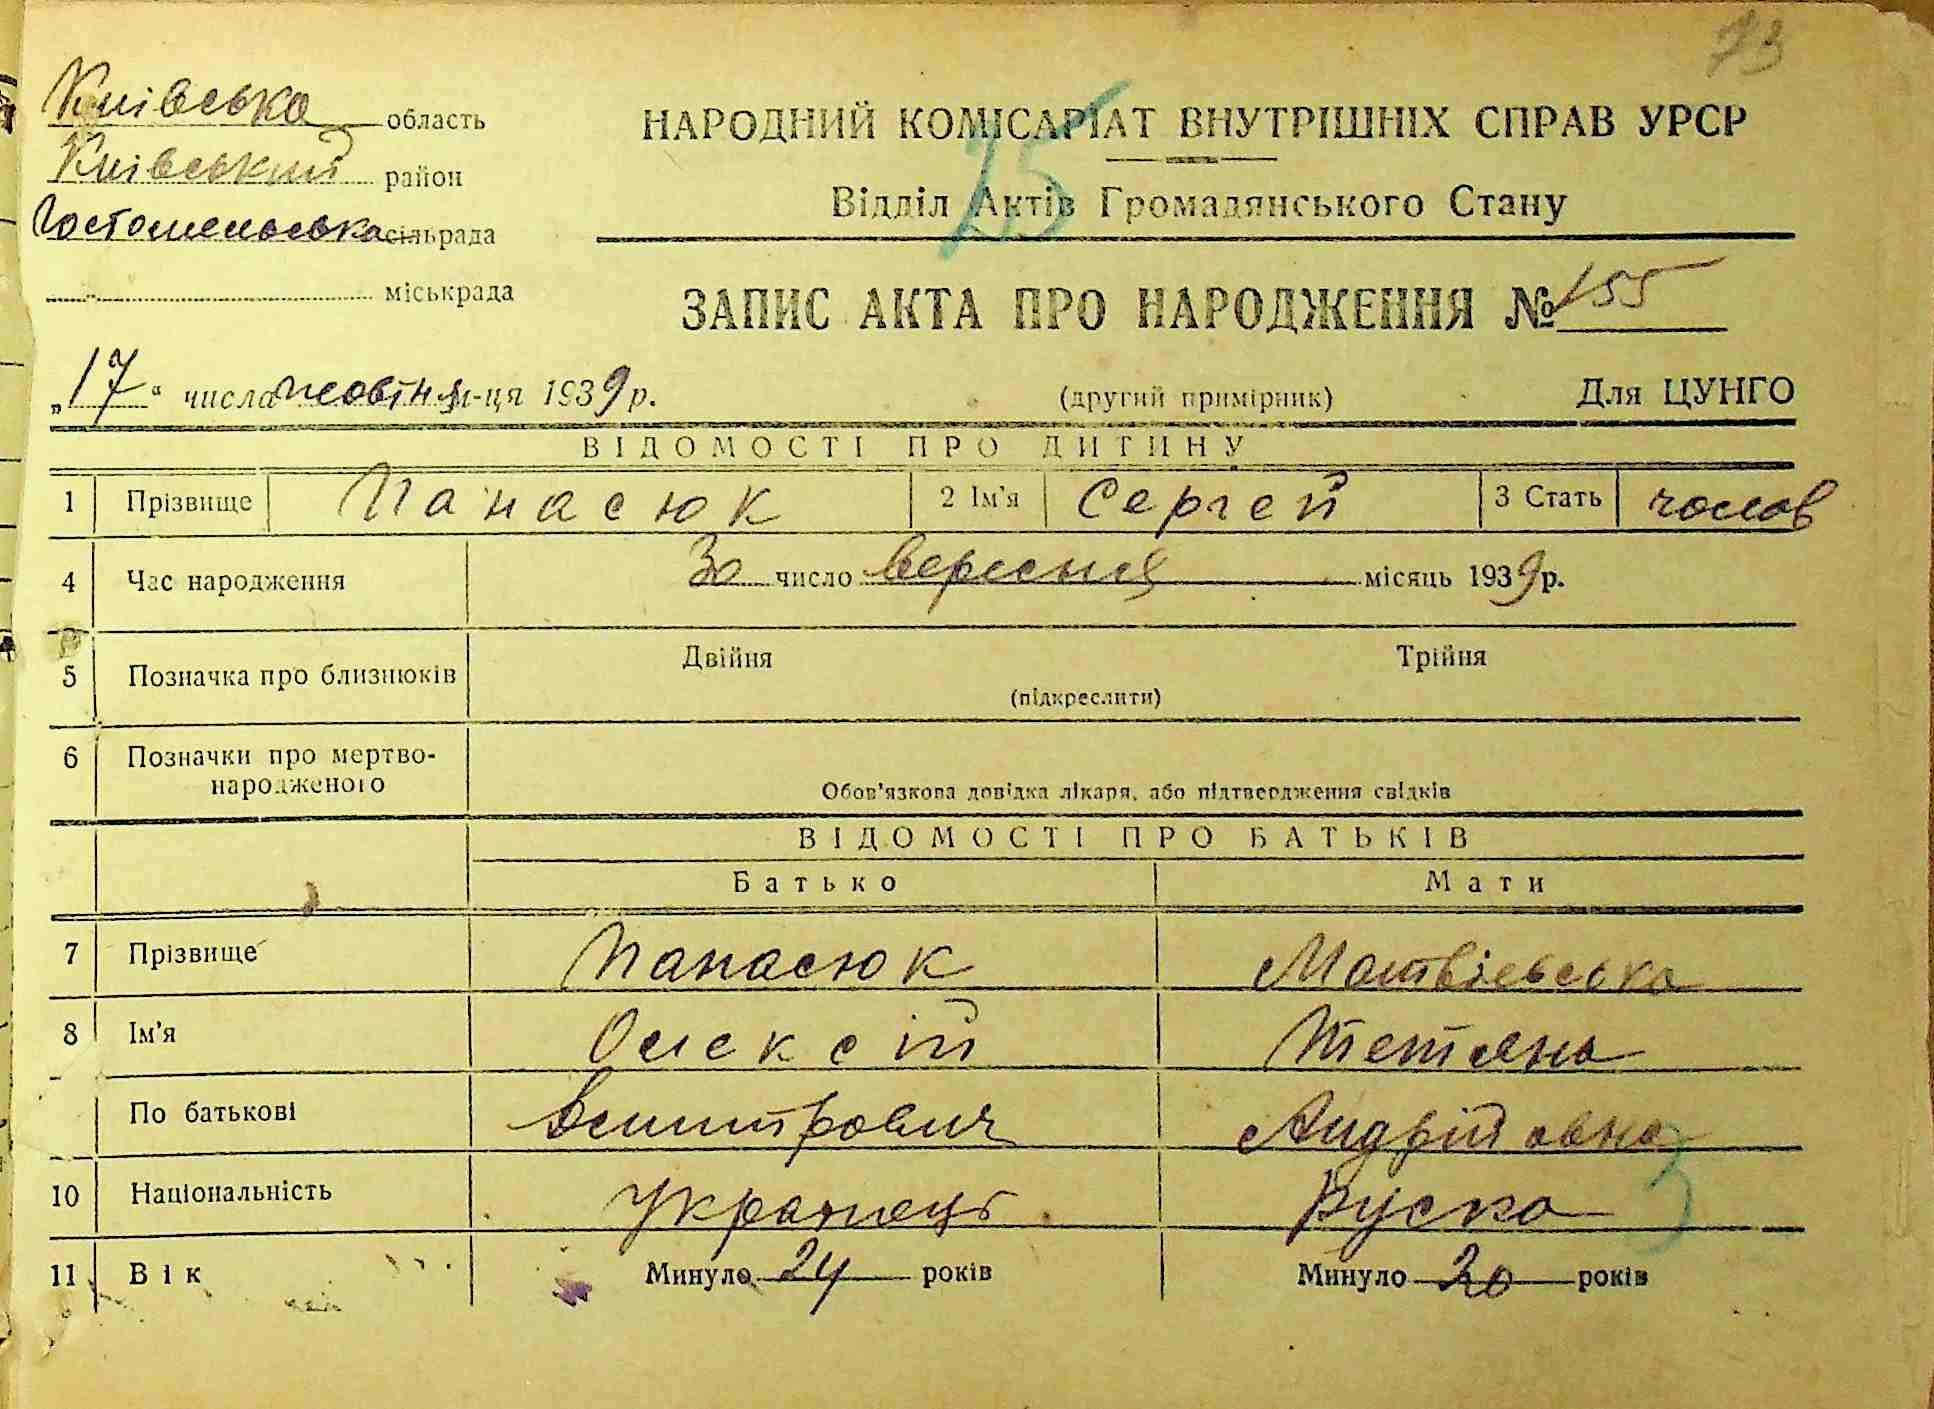 73
Київська область
Київський район
Гостомельська сільрада
міськрада
НАРОДНИЙ КОМІСАРІАТ ВНУТРІШНІХ СПРАВ УРСР
Відділ Актів Громадянського Стану
ЗАПИС АКТА ПРО НАРОДЖЕННЯ № 155
„17“ числа жовтня м-ця 1939 р.
(другий примірник)
Для ЦУНГО
ВІДОМОСТІ ПРО ДИТИНУ
1 Прізвище Панасюк 2 Ім'я Сергей 3 Стать чолов
4 Час народження 30 число вересня місяць 1939 р.
5 Позначка про близнюків Двійня Трійня
(підкреслити)
6 Позначки про мертво-
народженого
Обов'язкова довідка лікаря, або підтвердження свідків
ВІДОМОСТІ ПРО БАТЬКІВ
Батько Мати
7 Прізвище Панасюк Матвієвська
8 Ім'я Олексій Тетяна
По батькові Дмитрович Андрійовна
10 Національність Українець Руска
11 Вік Минуло 24 років Минуло 20 років